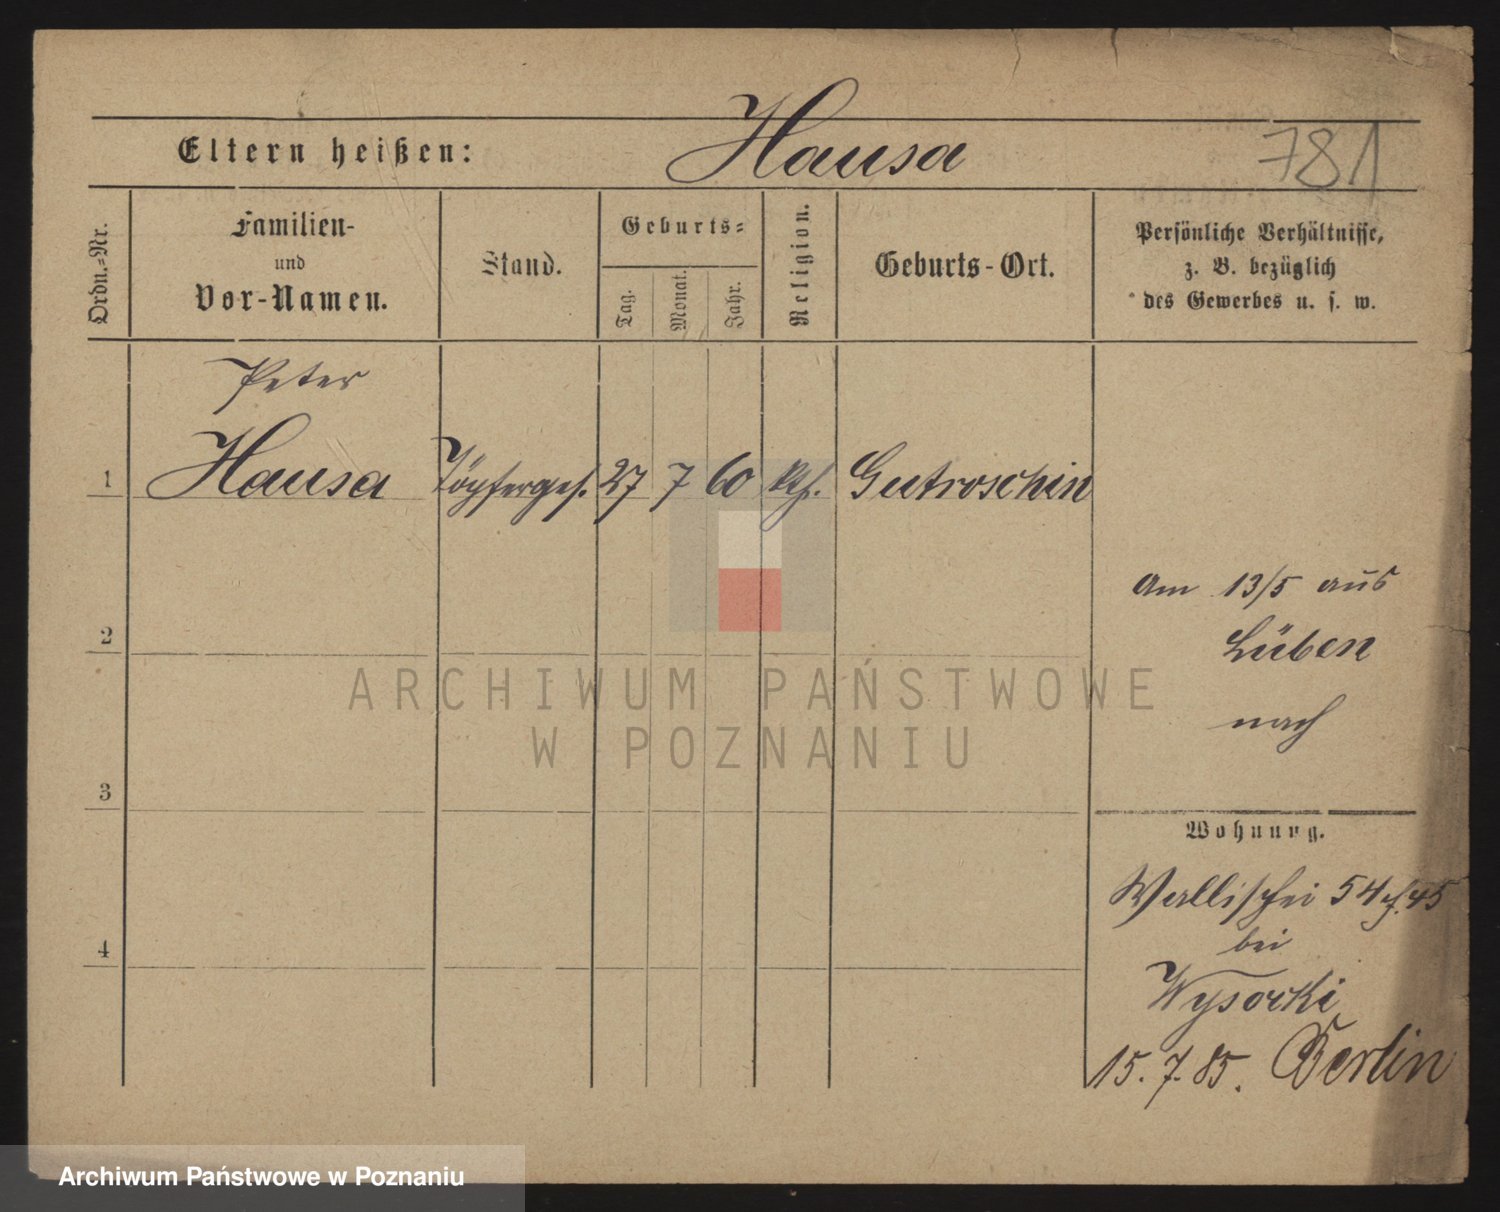 Eltern heißen: Hausa 781
Ordn.-Nr.
Familien-
und
Vor-Namen.
Stand.
Geburts-
Tag.
Monat.
Jahr.
Religion.
Geburts-Ort.
Persönliche Verhältnisse,
z. B. bezüglich
des Gewerbes u. s. w.
Peter
1 Hausa Töpferges. 27 7 60 kth. Gutroschin
Am 13/5 aus
Lüben
nach
2
3
4
Wohnung.
Wallischei 54 45
bei
Wysocki
15. 7. 85. Berlin
ARCHIWUM PAŃSTWOWE
W POZNANIU
Archiwum Państwowe w Poznaniu